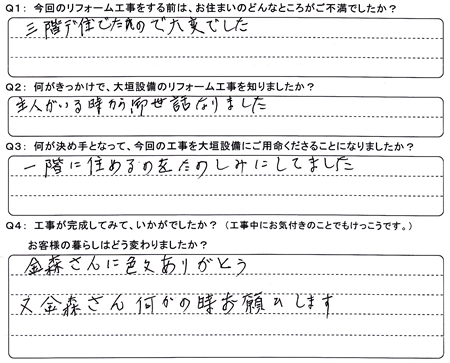 Q1： 今回のリフォーム工事をする前は、お住まいのどんなところがご不満でしたか？
三階デ住でたの で大変でした
Q2： 何がきっかけで、大垣設備のリフォーム工事を知りましたか？
主人がいる時から御世話なりました
Q3： 何が決め手となって、今回の工事を大垣設備にご用命くださることになりましたか？
一階に住めるのをたのしみにしてました
Q4： 工事が完成してみて、いかがでしたか？ （工事中にお気付きのことでもけっこうです。）
お客様の暮らしはどう変わりましたか？
金森さんに色々ありがとう
又金森さん何かの時お願ひします